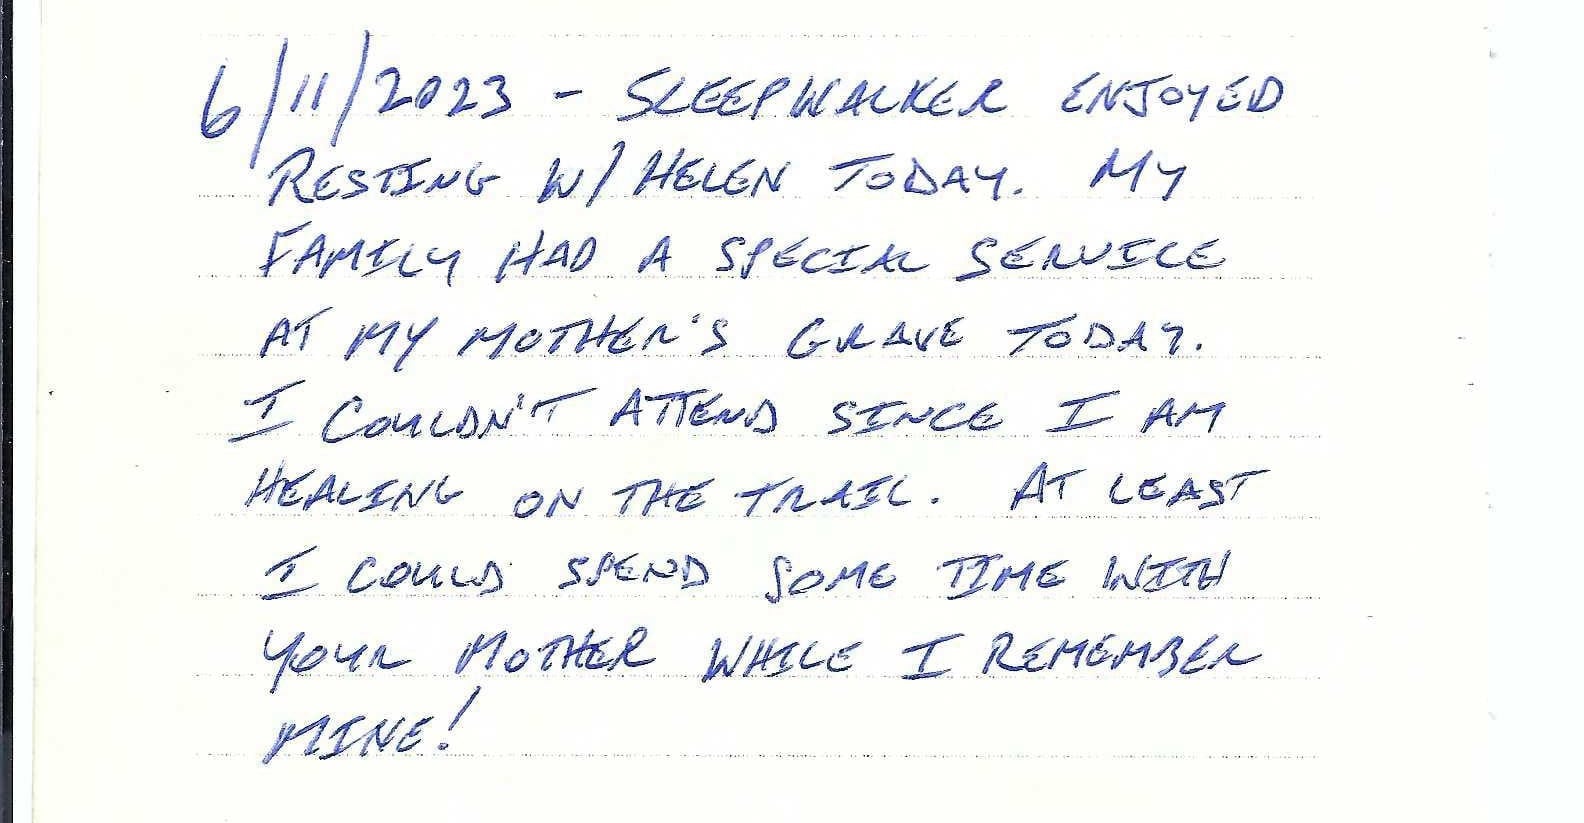 6/11/2023 - SLEEPWALKER ENJOYED
RESTING W/ HELEN TODAY. MY
FAMILY HAD A SPECIAL SERVICE
AT MY MOTHER'S GRAVE TODAY.
I COULDN'T ATTEND SINCE I AM
HEALING ON THE TRAIL. AT LEAST
I COULD SPEND SOME TIME WITH
YOUR MOTHER WHILE I REMEMBER
MINE!